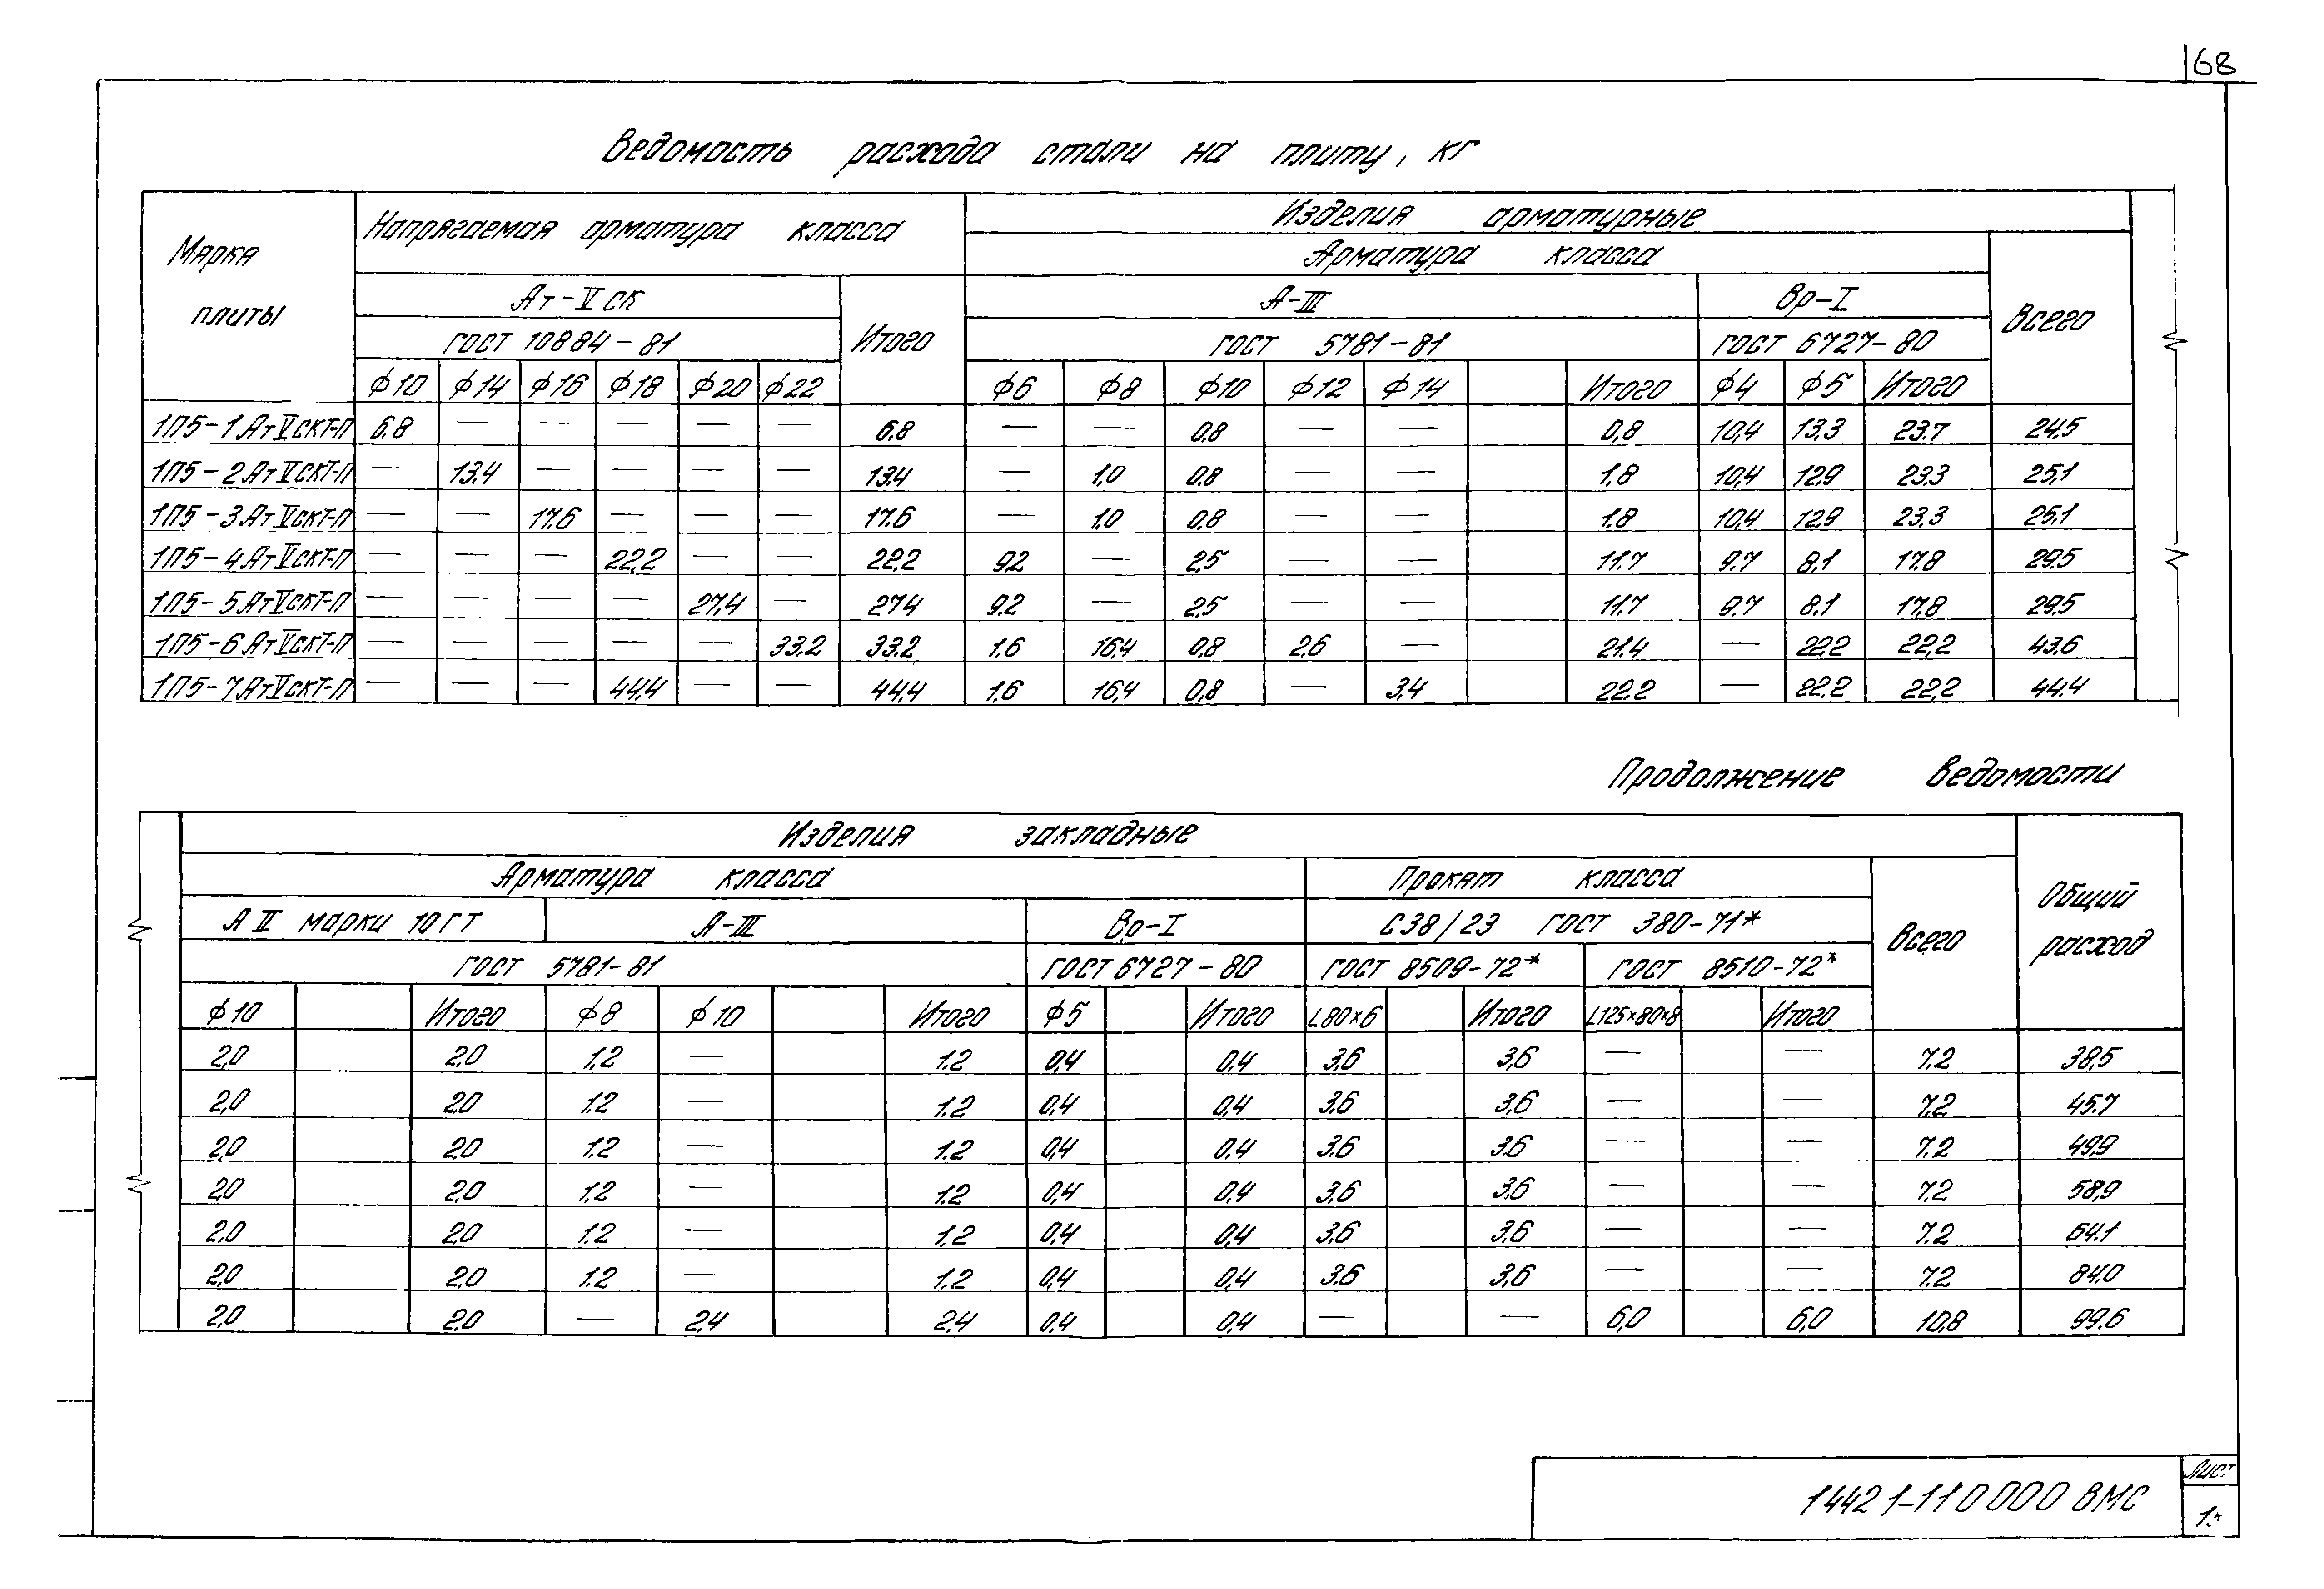 68
Ведомость расхода стали на плиту, кг
Марка плиты Напрягаемая арматура класса Изделия арматурные
Арматура класса Всего
Ат-V ск Итого А-III Вр-I
ГОСТ 10884-81 ГОСТ 5781-81 ГОСТ 6727-80
ф10 ф14 ф16 ф18 ф20 ф22 ф6 ф8 ф10 ф12 ф14 Итого ф4 ф5 Итого
1П5-1АтVСКТ-П 6,8 — — — — — 6,8 — — 0,8 — — 0,8 10,4 13,3 23.7 24,5
1П5-2АтVСКТ-П — 13.4 — — — — 13.4 — 1,0 0.8 — — 1,8 10,4 12,9 23.3 25,1
1П5-3АтVСКТ-П — — 17.6 — — — 17.6 — 1,0 0.8 — — 1.8 10,4 12.9 23.3 25,1
1П5-4АтVСКТ-П — — — 22,2 — — 22,2 9,2 — 2,5 — — 11.7 9.7 8.1 17.8 29.5
1П5-5АтVСКТ-П — — — — 27,4 — 27,4 9.2 — 2,5 — — 11.7 9.7 8.1 17,8 29.5
1П5-6АтVСКТ-П — — — — — 33.2 33.2 1.6 16.4 0.8 2.6 — 21.4 — 22,2 22,2 43.6
1П5-7АтVСКТ-П — — — 44,4 — — 44,4 1.6 16,4 0.8 — 3.4 22.2 — 22.2 22,2 44.4
Продолжение ведомости
Изделия закладные Общий расход
Арматура класса Прокат класса Всего
А II марки 10ГТ А-III Вр-I С38/23 ГОСТ 380-71*
ГОСТ 5781-81 ГОСТ 6727-80 ГОСТ 8509-72* ГОСТ 8510-72*
ф10 Итого ф8 ф10 Итого ф5 Итого L80×6 Итого L125×80×8 Итого
2,0 2,0 1.2 — 1.2 0,4 0,4 3.6 3,6 — — 7.2 38,5
2,0 2.0 1.2 — 1.2 0,4 0,4 3.6 3.6 — — 7.2 45.7
2,0 2.0 1.2 — 1.2 0,4 0.4 3.6 3.6 — — 7.2 49,9
2,0 2.0 1.2 — 1.2 0,4 0.4 3.6 3.6 — — 7.2 58,9
2,0 2.0 1.2 — 1.2 0,4 0,4 3.6 3.6 — — 7.2 64.1
2,0 2.0 1.2 — 1.2 0,4 0,4 3.6 3,6 — — 7.2 84.0
2,0 2.0 — 2,4 2,4 0,4 0,4 — — 6,0 6,0 10,8 99.6
1442 1-110000 ВМС
Лист